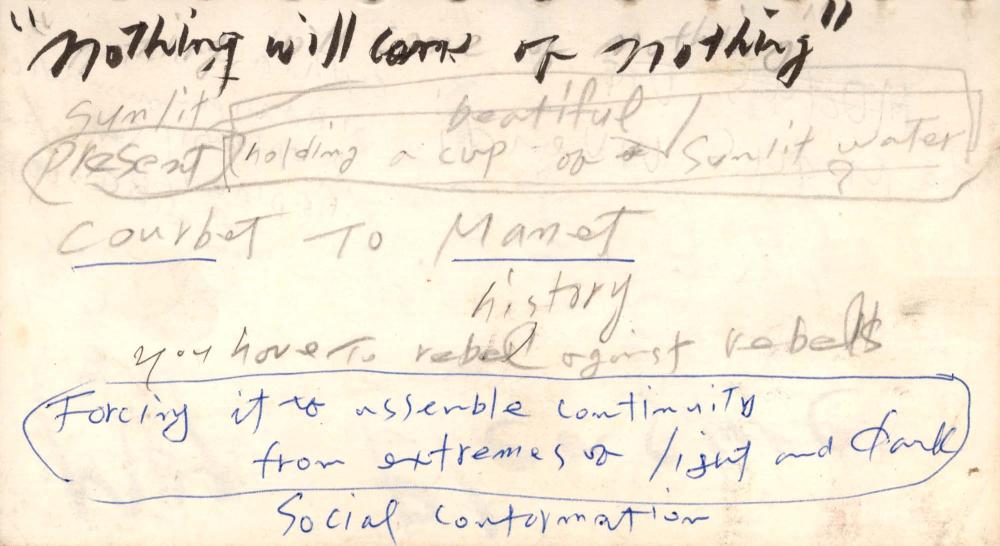 "Nothing will come of nothing"
sunlit beatiful
Present holding a cup of sunlit water
?
Courbet To Manet
history
you have to rebel against rebels
Forcing it to assemble continuity
from extremes of light and dark
Social conformation